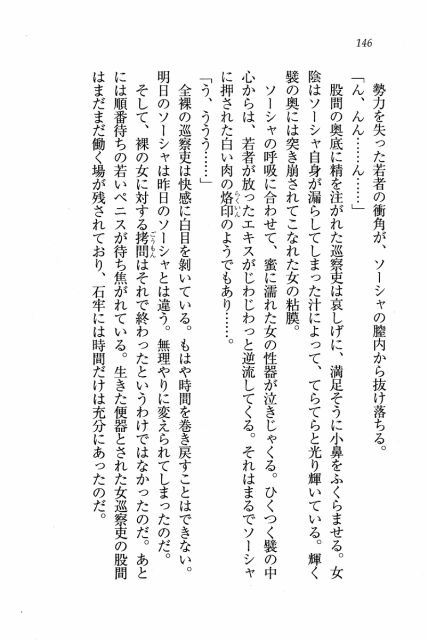 146
勢力を失った若者の衝角が、ソーシャの膣内から抜け落ちる。
「ん、んん……ん……」
股間の奥底に精を注がれた巡察吏は哀しげに、満足そうに小鼻をふくらませる。女
陰はソーシャ自身が漏らしてしまった汁によって、てらてらと光り輝いている。輝く
襞の奥には突き崩されてこなれた女の粘膜。
ソーシャの呼吸に合わせて、蜜に濡れた女の性器が泣きじゃくる。ひくつく襞の中
心からは、若者が放ったエキスがじわじわっと逆流してくる。それはまるでソーシャ
に押された白い肉の烙印のようでもあり……。
「う、ううう……」
全裸の巡察吏は快感に白目を剝いている。もはや時間を巻き戻すことはできない。
明日のソーシャは昨日のソーシャとは違う。無理やりに変えられてしまったのだ。
そして、裸の女に対する拷問はそれで終わったというわけではなかったのだ。あと
には順番待ちの若いペニスが待ち焦がれている。生きた便器とされた女巡察吏の股間
はまだまだ働く場が残されており、石牢には時間だけは充分にあったのだ。